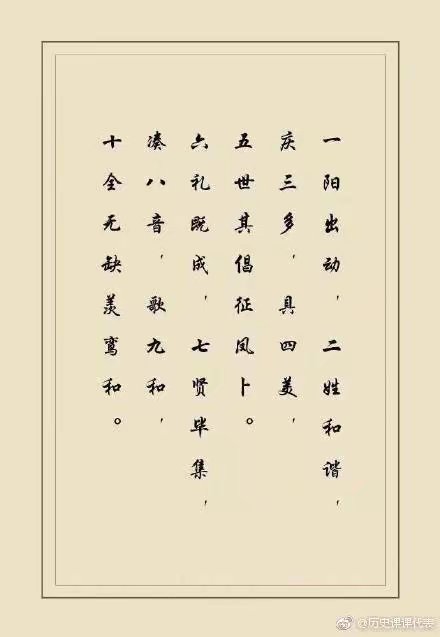 一阳出动，二姓和谐，
庆三多，具四美，
五世其倡征凤卜。
六礼既成，七贤毕集，
凑八音，歌九和，
十全无缺羡鸾和。
@历史课课代表